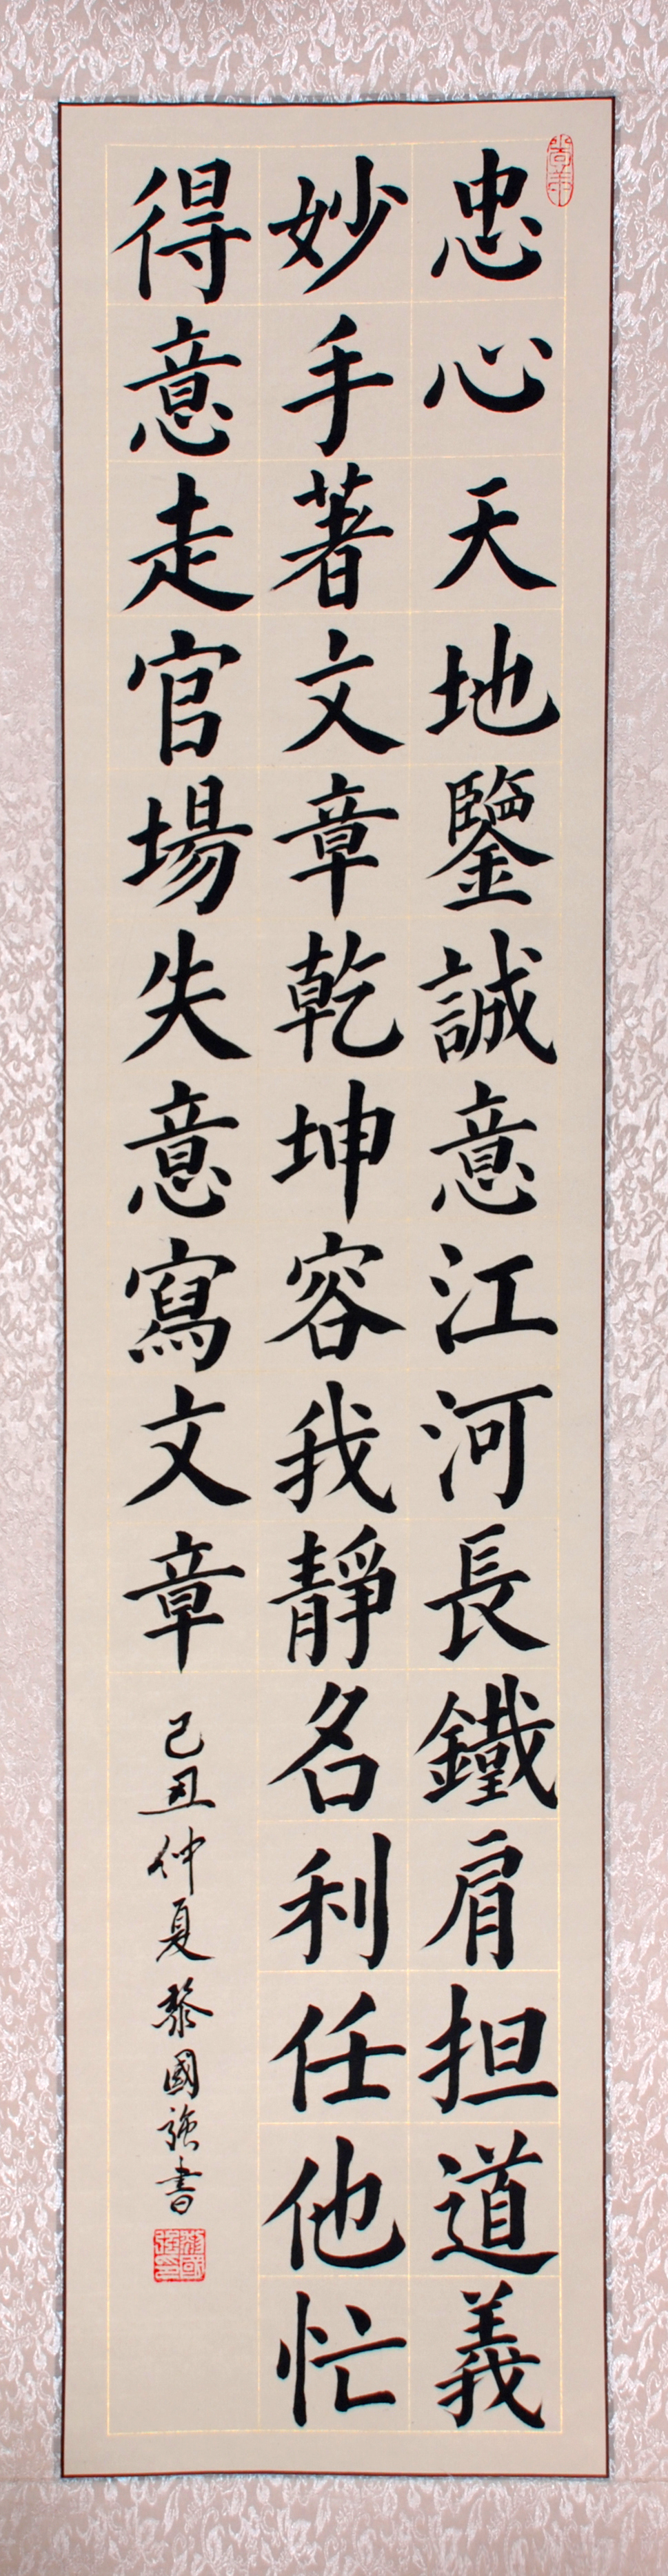 忠心天地鑒誠意江河長鐵肩担道義
妙手著文章乾坤容我靜名利任他忙
得意走官場失意寫文章
己丑仲夏黎國強書